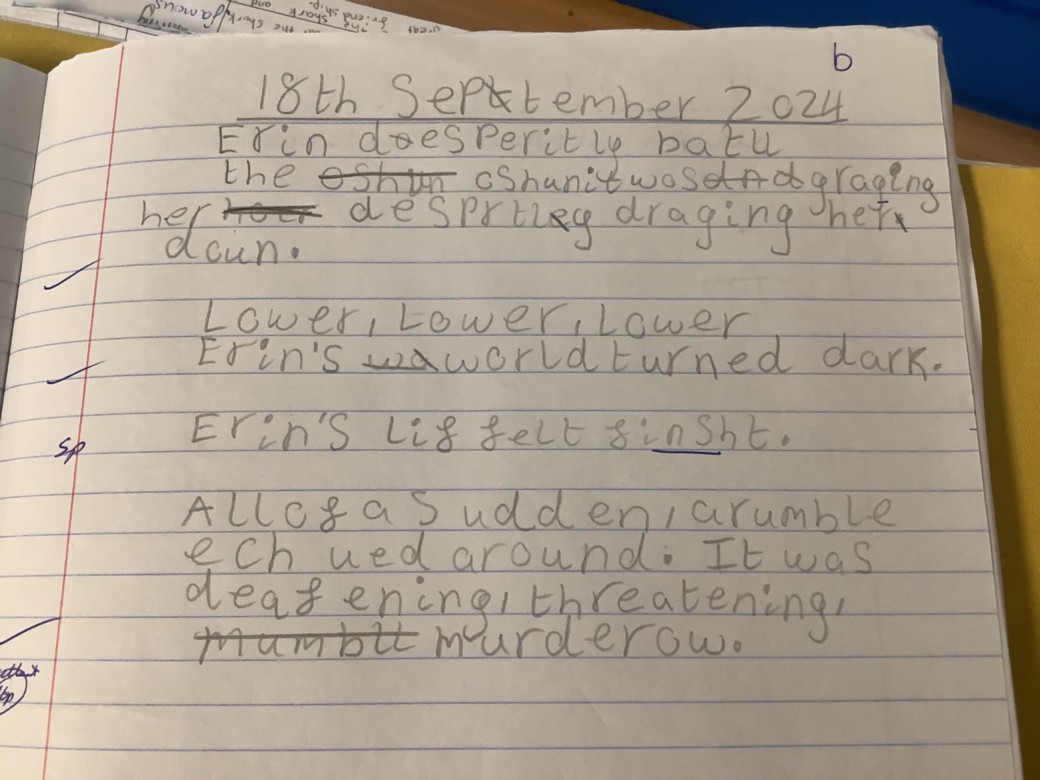 b
18th September 2024
Erin doesperitly batu
the oshun oshunitwas and graging
her hoer desprtley draging her
doun.
Lower, Lower, Lower
Erin's wa world turned dark.
Erin's Lif felt finsht.
sp
All of a Sudden, a rumble
echued around. It was
deafening, threatening,
mumblt murderow.